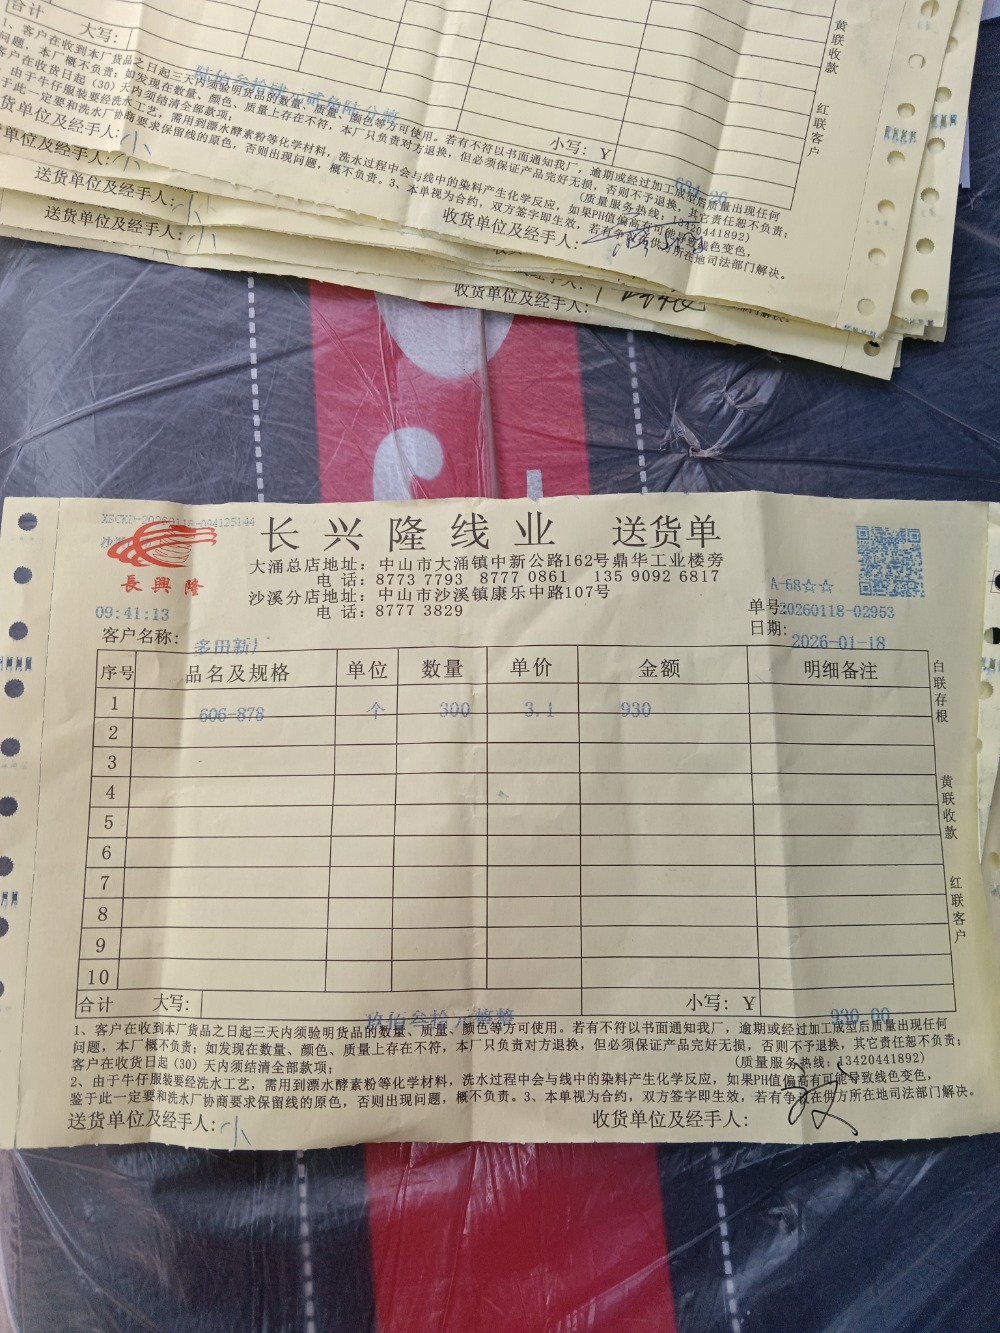 合计
大写:
陆佰叁拾肆元贰角陆分整
小写: Y
634.26
黄联收款
红联客户
1、客户在收到本厂货品之日起三天内须验明货品的数量、质量、颜色等方可使用。若有不符以书面通知我厂，逾期或经过加工成型后质量出现任何
问题，本厂概不负责；如发现在数量、颜色、质量上存在不符，本厂只负责对方退换，但必须保证产品完好无损，否则不予退换，其它责任恕不负责；
客户在收货日起（30）天内须结清全部款项；
(质量服务热线：13420441892)
由于牛仔服装要经洗水工艺，需用到漂水酵素粉等化学材料，洗水过程中会与线中的染料产生化学反应，如果PH值偏高有可能导致线色变色，
于此一定要和洗水厂协商要求保留线的原色，否则出现问题，概不负责。3、本单视为合约，双方签字即生效，若有争议在供方所在地司法部门解决。
货单位及经手人: 小
收货单位及经手人:
单位及经手人:
送货单位及经手人: 小
送货单位及经手人: 小
收货单位及经手人:
XSCKD-20260118-094125144
長興隆
长兴隆线业 送货单
大涌总店地址：中山市大涌镇中新公路162号鼎华工业楼旁
电 话：8773 7793 8777 0861 135 9092 6817
沙溪分店地址：中山市沙溪镇康乐中路107号
电 话：8777 3829
A-68☆☆
09:41:13
单号:20260118-02953
客户名称: 多田新厂
日期: 2026-01-18
序号 品名及规格 单位 数量 单价 金额 明细备注
1 606-878 个 300 3.1 930
2
3
4
5
6
7
8
9
10
合计 大写: 玖佰叁拾元整整 小写: Y 930.00
白联存根
黄联收款
红联客户
1、客户在收到本厂货品之日起三天内须验明货品的数量、质量、颜色等方可使用。若有不符以书面通知我厂，逾期或经过加工成型后质量出现任何
问题，本厂概不负责；如发现在数量、颜色、质量上存在不符，本厂只负责对方退换，但必须保证产品完好无损，否则不予退换，其它责任恕不负责；
客户在收货日起（30）天内须结清全部款项；
(质量服务热线：13420441892)
2、由于牛仔服装要经洗水工艺，需用到漂水酵素粉等化学材料，洗水过程中会与线中的染料产生化学反应，如果PH值偏高有可能导致线色变色，
鉴于此一定要和洗水厂协商要求保留线的原色，否则出现问题，概不负责。3、本单视为合约，双方签字即生效，若有争议在供方所在地司法部门解决。
送货单位及经手人: 小
收货单位及经手人: